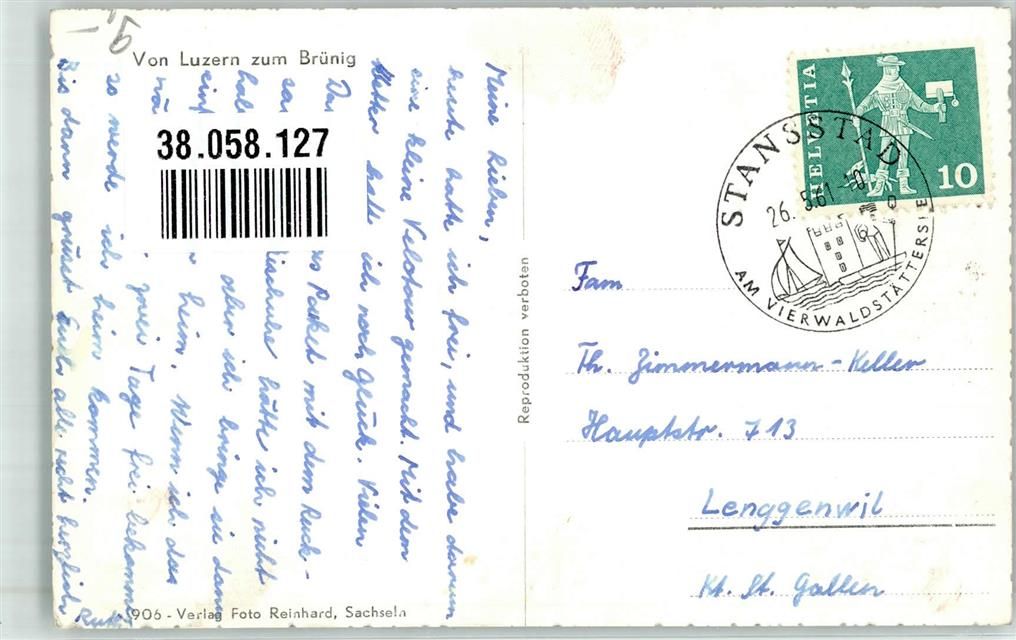 Von Luzern zum Brünig
Meine Lieben,
heute hatte ich frei, und habe darum
eine kleine Velotour gemacht. Mit dem
Wetter hatte ich noch Glück. Vielen
Dan
Paket mit dem Ruck-
hätte ich nicht
hab
oder ich bringe sie dann
heim. Wenn ich das
zwei Tage frei bekomme
so werde ich heim kommen.
Bis dann grüsst Euch alle recht herzlich
Ruth
38.058.127
906 - Verlag Foto Reinhard, Sachseln
Reproduktion verboten
HELVETIA
10
STANSSTAD
26. 5.61 -10
AM VIERWALDSTÄTTERSEE
Fam
Th. Zimmermann-Keller
Hauptstr. 713
Lenggenwil
Kt. St. Gallen